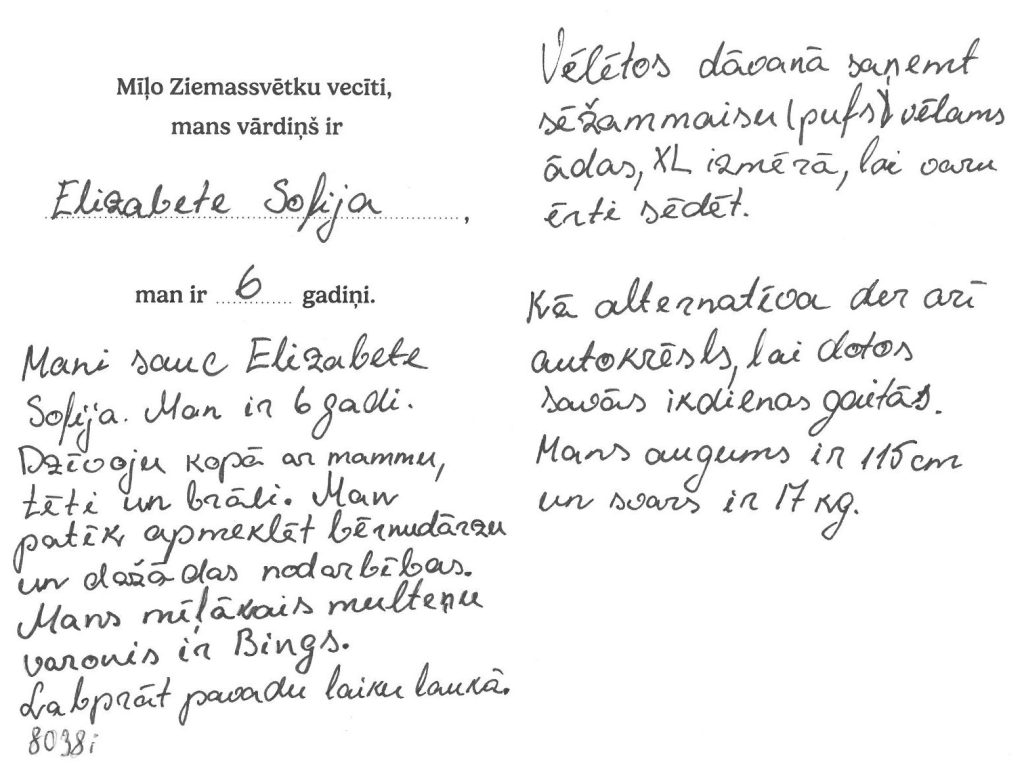 Mīļo Ziemassvētku vecīti,
mans vārdiņš ir
Elizabete Sofija,
man ir 6 gadiņi.
Mani sauc Elizabete
Sofija. Man ir 6 gadi.
Dzīvoju kopā ar mammu,
tēti un brāli. Man
patīk apmeklēt bērnudārzu
un dažādas nodarbības.
Mans mīļākais multeņu
varonis ir Bings.
Labprāt pavadu laiku laukā.
8038i
Vēlētos dāvanā saņemt
sēžammaisu (pufs) vēlams
ādas, XL izmērā, lai varu
ērti sēdēt.
Kā alternatīva der arī
autokrēsls, lai dotos
savās ikdienas gaitās.
Mans augums ir 115cm
un svars ir 17 kg.